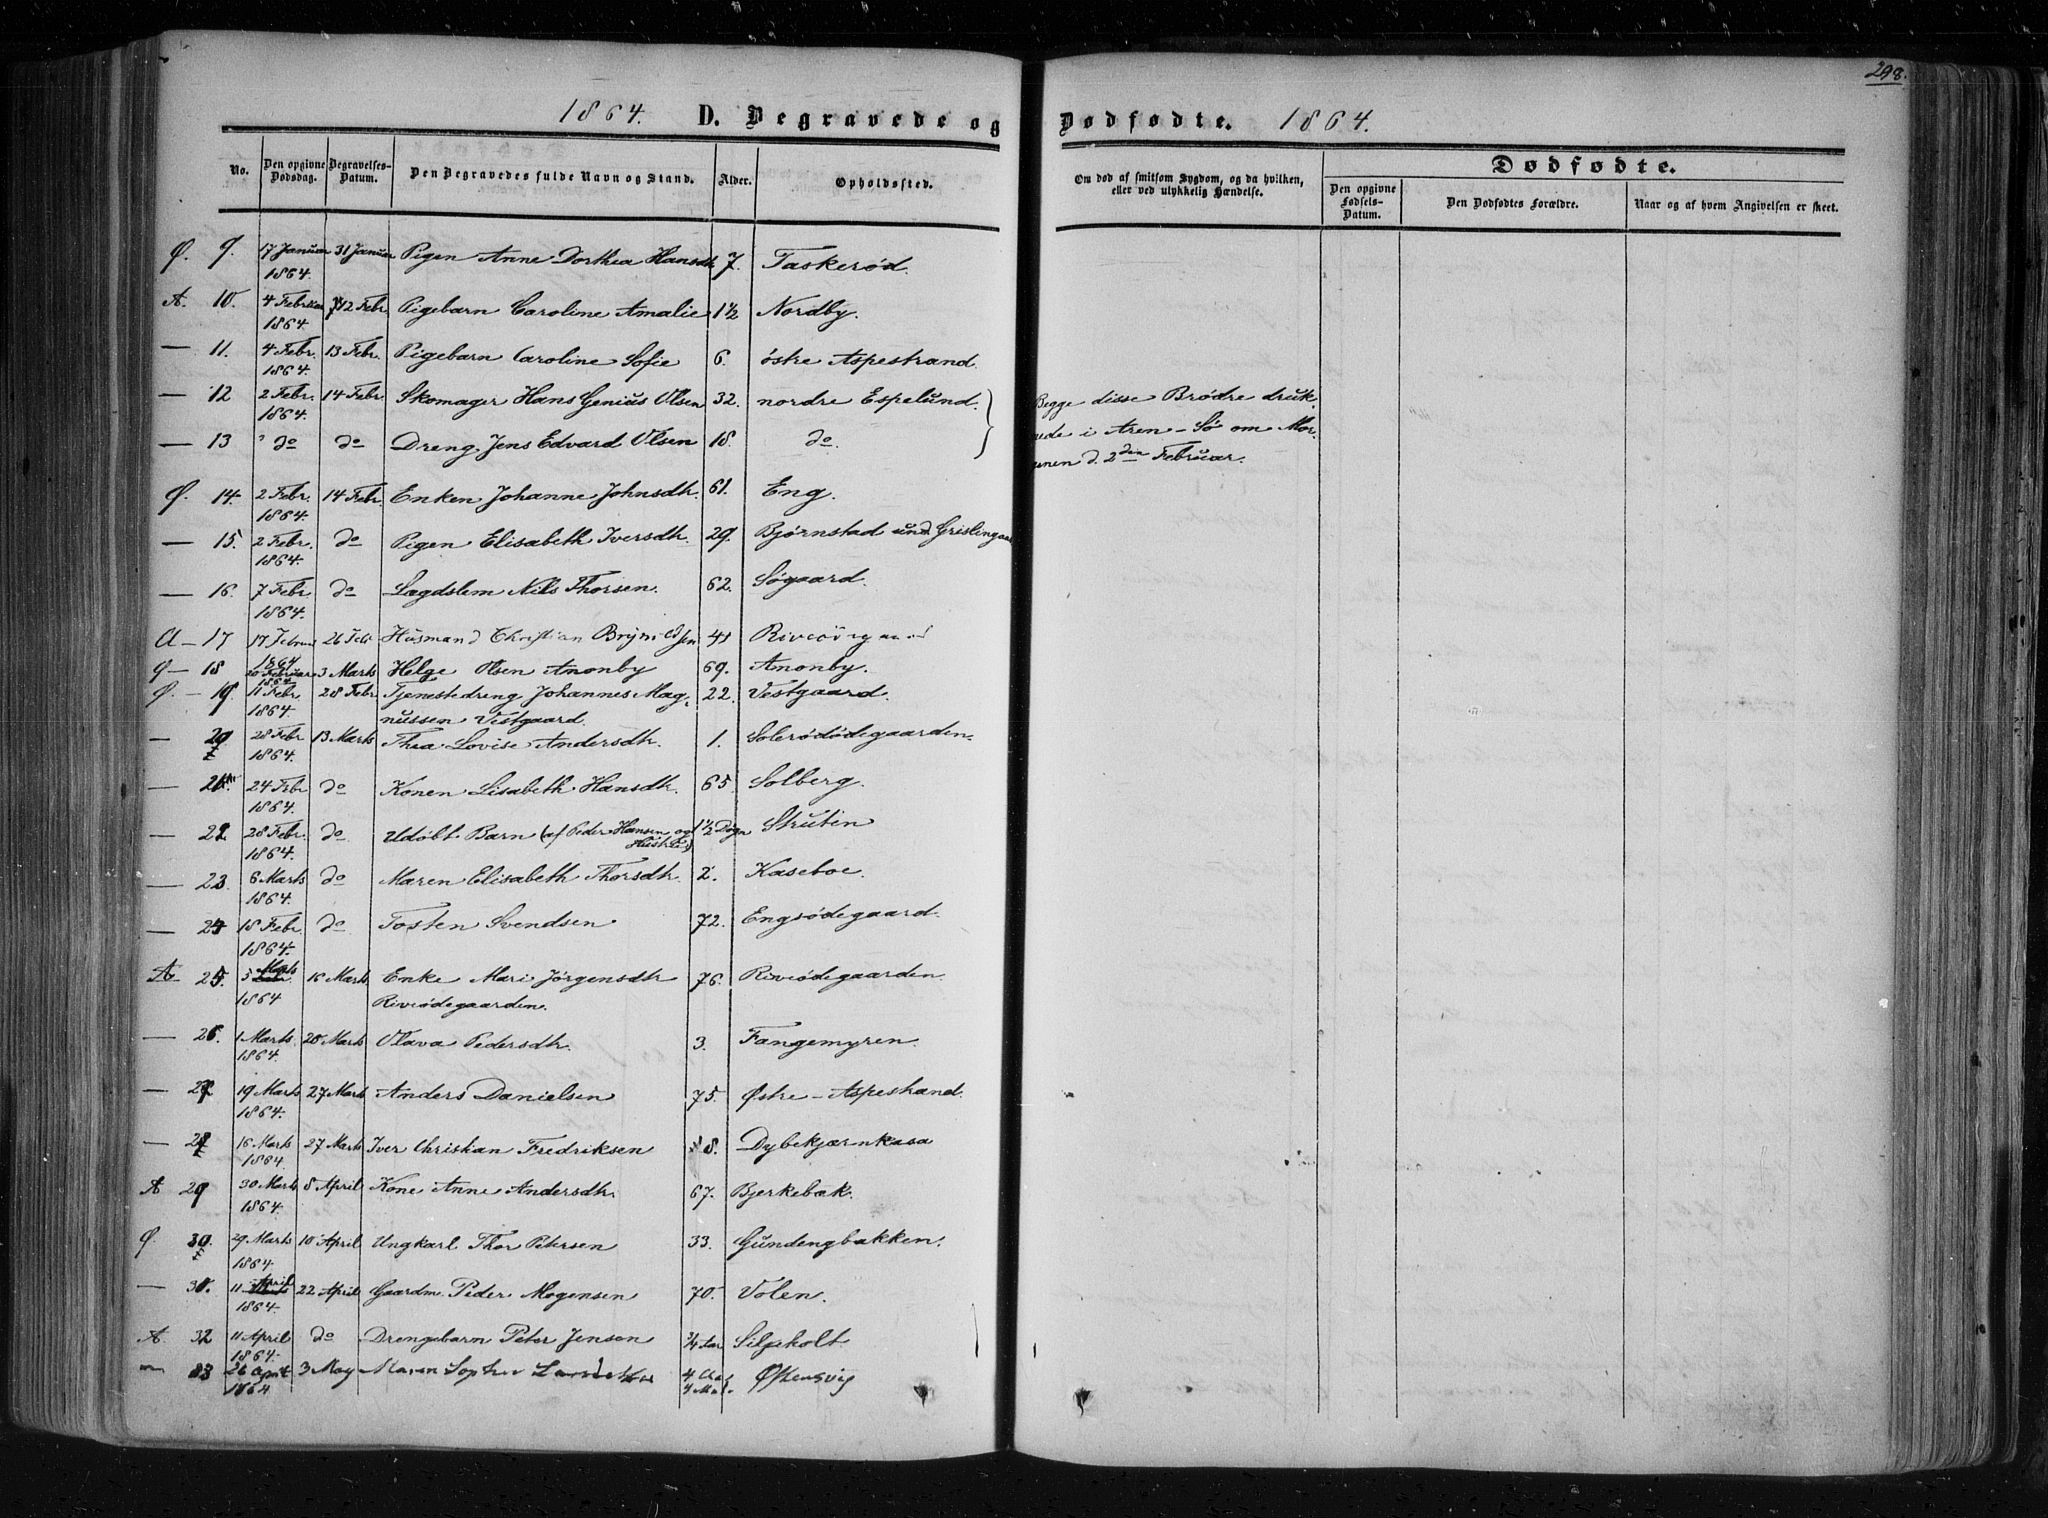 298.
1864. D. Begravede og Dødfødte. 1864.
No. Den opgivne Dødsdag. Begravelses-Datum. Den Begravedes fulde Navn og Stand. Alder. Opholdssted. Om død af smitsom Sygdom, og da hvilken, eller ved ulykkelig Hændelse. Dødfødte.
Den opgivne Fødsels-Datum. Den Dødfødtes Forældre. Naar og af hvem Angivelsen er skeet.
Ø. 9. 17 Januar 31 Januar Pigen Anne Dorthea Hansdtr 7. Taskerød.
1864.
A. 10. 4 Februar 12 Febr. Pigebarn Caroline Amalie 1½ Nordby.
1864.
— 11. 4 Febr. 13 Febr. Pigebarn Caroline Sofie 6. østre Aspestrand.
1864.
— 12 2 Febr. 14 Febr. Skomager Hans Genius Olsen 32. nordre Espelund. Begge disse Brødre druk-
1864.
— 13 do do Dreng Jens Edvard Olsen 18. do. nede i Aren-Sø om Mor-
genen d. 2den Februar.
Ø. 14. 2 Febr. 14 Febr. Enken Johanne Johnsdtr. 61. Eng.
1864.
— 15. 2 Febr. do Pigen Elisabeth Iversdtr. 29. Bjørnstad und Grislingaas
1864.
— 16. 7 Febr do Lægdslem Nils Thorsen. 62. Søgaard.
1864.
A — 17 17 Februar 26 Feb Husmand Christian Brynildsen 41
1864
Ø — 18 20 Februar 3 Marts Helge Olsen Anonby 69. Anonby.
1864
Ø. — 19. 11 Febr. 28 Febr. Tjenestedreng Johannes Mag- 22. Vestgaard.
1864. nussen Vestgaard.
— 20 28 Febr 13 Marts Thea Lovise Andersdtr. 1. Solerødødegaarden.
1864.
— 21. 24 Febr do Konen Lisabeth Hansdtr. 65. Solberg.
1864.
— 22. 28 Febr. do Udøbt Barn (af Peder Hansen og 1½ Døgn Strutin
1864. Hustru)
— 23 6 Marts do Maren Elisabeth Thorsdtr. 2. Kaseboe.
1864.
— 24 18 Febr do Tosten Svendsen 72. Engsødegaard.
1864.
A — 25. 5 Marts 16 Marts Enke Mari Jörgensdtr 76. Riveødegaarden.
1864 Riveødegaarden.
— 26. 1 Marts 28 Marts Olava Pedersdtr. 3. Fangemyren.
1864.
— 27 19 Marts 27 Marts Anders Danielsen 75. Østre-Aspestrand.
1864.
— 28 16 Marts 27 Marts Iver Christian Fredriksen 8. Dybekjærnkasa
1864.
A — 29 30 Marts 8 April Kone Anne Andersdtr. 67. Bjerkebæk.
1864.
Ø. 30. 29 Marts 10 April Ungkarl Thor Petersen 33. Gundengbakken.
1864.
— 31. 11 April 22 April Gaardm. Peder Mogensen 70. Volen.
1864
A — 32 11 April do Drengebarn Peter Jensen ¾ Aar Siljeholt.
1864.
— 33 26 April 3 May Maren Sophie 4
1864